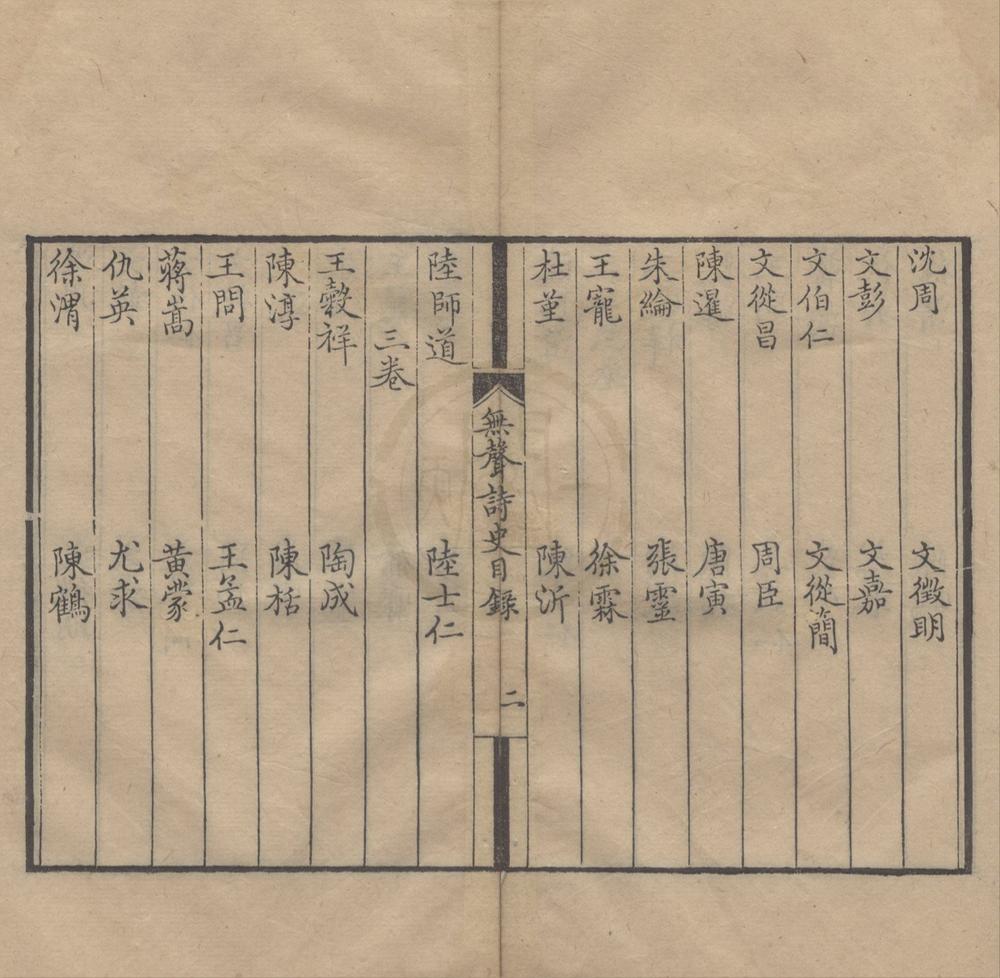 沈周 文徵明
文彭 文嘉
文伯仁 文從簡
文從昌 周臣
陳暹 唐寅
朱綸 張靈
王寵 徐霖
杜堇 陳沂
無聲詩史目錄 二
陸師道 陸士仁
三卷
王穀祥 陶成
陳淳 陳栝
王問 王孟仁
蔣嵩 黃蒙
仇英 尤求
徐渭 陳鶴